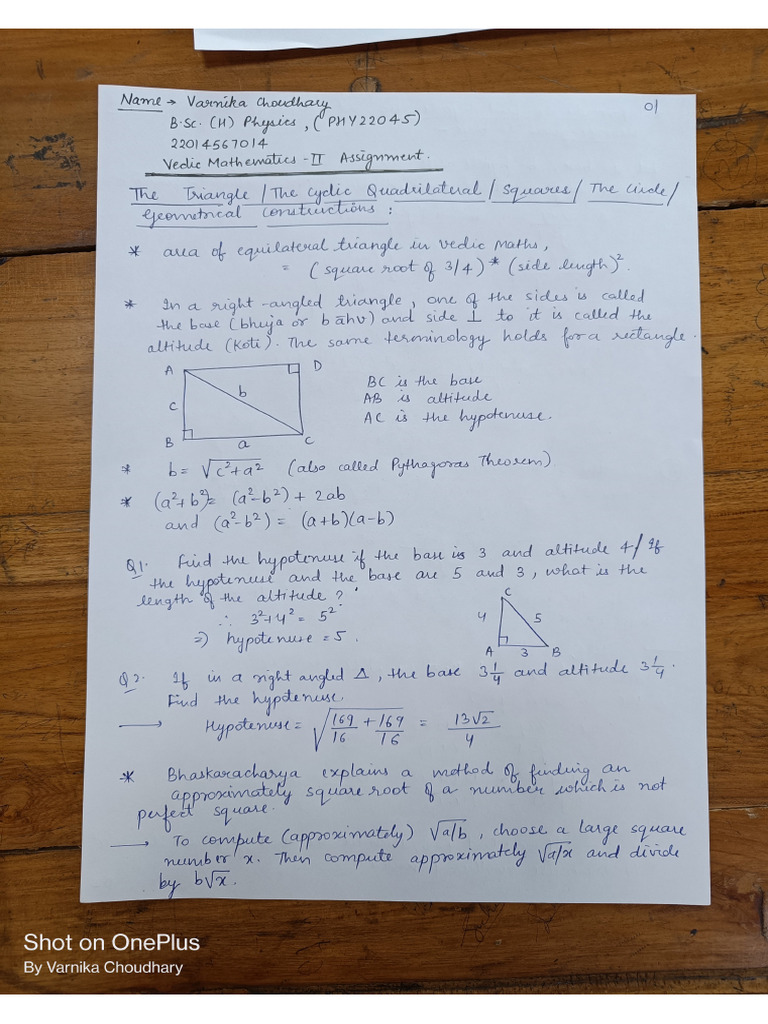 Name → Varnika Choudhary
01
B.Sc. (H) Physics, (PHY22045)
22014567014
Vedic Mathematics -II Assignment.
The Triangle / The Cyclic Quadrilateral / Squares / The Circle /
Geometrical Constructions :
* area of equilateral triangle in vedic Maths,
= (square root of 3/4) * (side length)².
* In a right-angled triangle, one of the sides is called
the base (bhuja or bāhu) and side ⊥ to it is called the
altitude (Koti). The same terminology holds for a rectangle.
A D
b
c
B a C
BC is the base
AB is altitude
AC is the hypotenuse.
* b = √c²+a² (also called Pythagoras Theorem)
* (a²+b²)= (a²-b²) + 2ab
and (a²-b²) = (a+b)(a-b)
Q1. Find the hypotenuse if the base is 3 and altitude 4 / If
the hypotenuse and the base are 5 and 3, what is the
length of the altitude?
∴ 3²+4² = 5²
⇒ hypotenuse = 5.
C
4 5
A 3 B
Q2. If in a right angled Δ, the base 3 1/4 and altitude 3 1/4.
Find the hypotenuse.
→ Hypotenuse = √169/16 + 169/16 = 13√2/4
* Bhaskaracharya explains a method of finding an
approximately square root of a number which is not
perfect square.
→ To compute (approximately) √a/b, choose a large square
number x. Then compute approximately √a/x and divide
by b√x.
Shot on OnePlus
By Varnika Choudhary